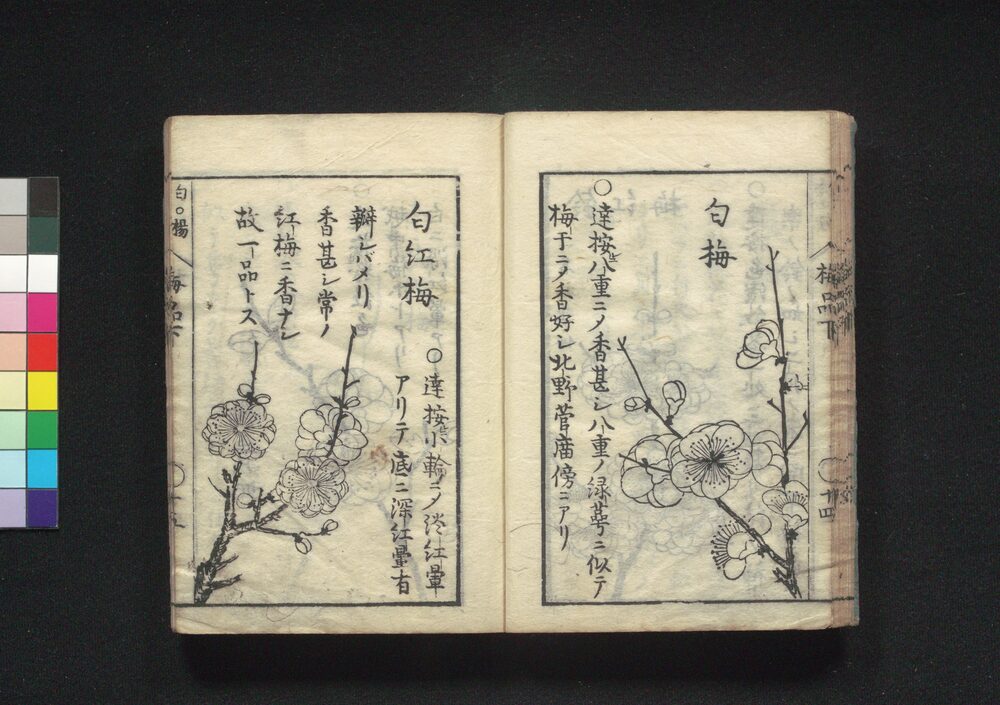 匂梅
○達按八重ニメ香甚シ八重ノ緑萼ニ似テ
梅干ニメ香好シ北野菅廟傍ニアリ
梅品下
十四
匂紅梅
○達按小輪ニメ淡紅暈
アリテ底ニ深紅暈有
瓣シバメリ
香甚シ常ノ
紅梅ニ香ナシ
故一品トス
匂○楊
梅品下